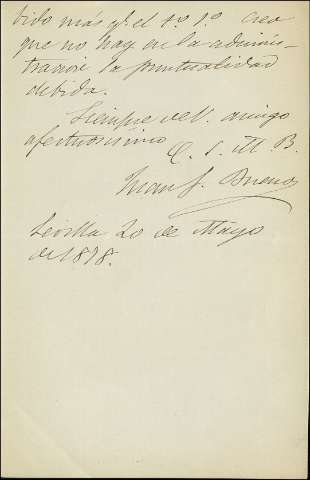 bido más q.e el n.o 1.o Creo
que no hay en la adminis-
tracion la puntualidad
debida.
Siempre de V. amigo
afectuosisimo
Q. S. M. B.
Juan J. Bueno
Sevilla 20 de Mayo
de 1878.